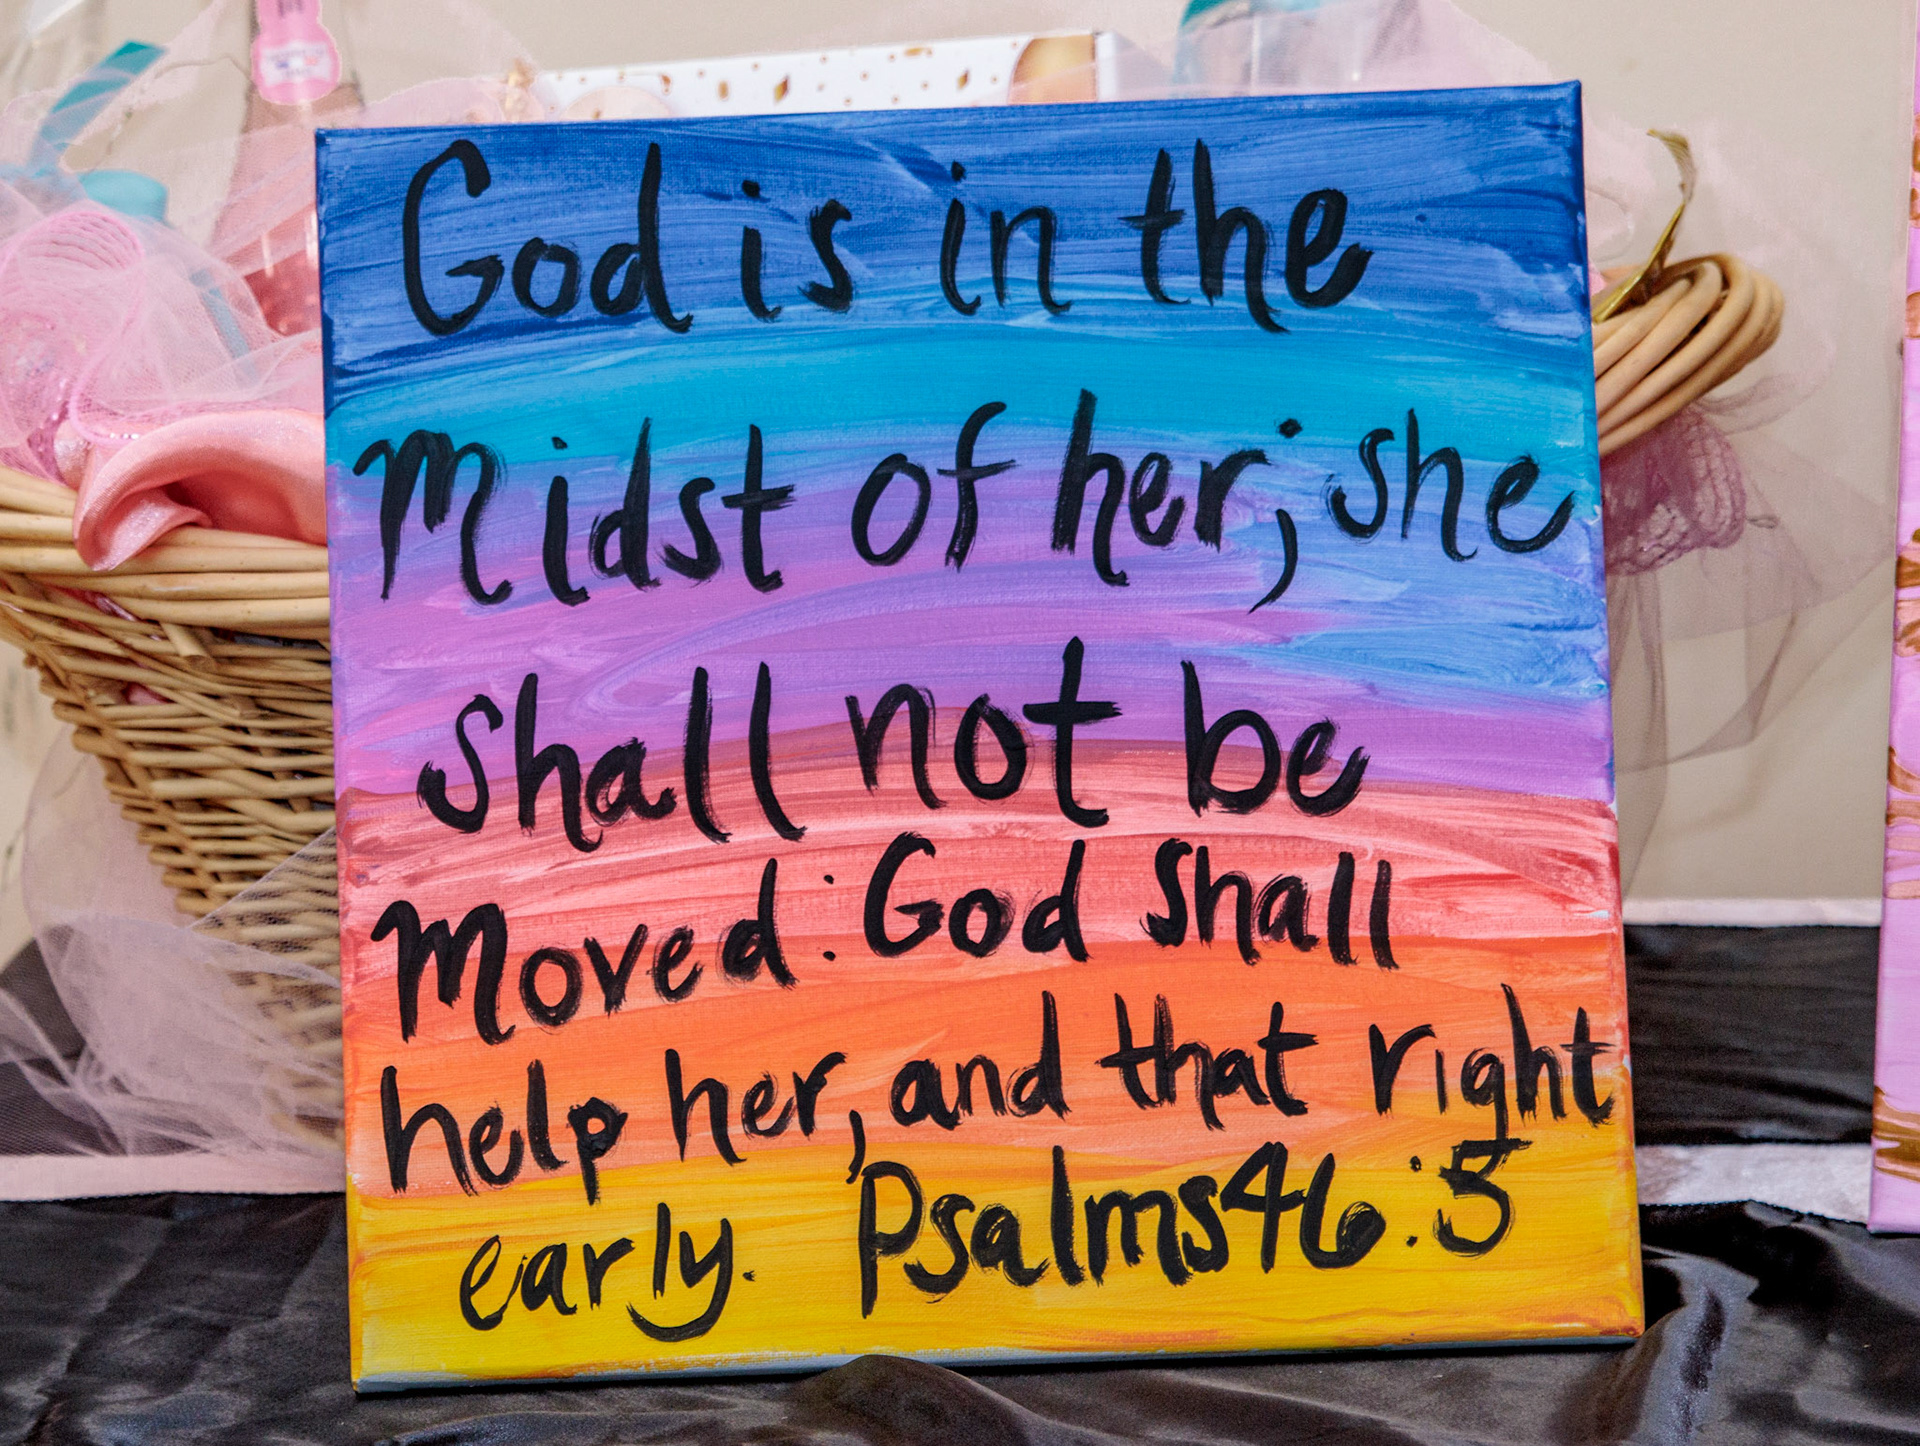 God is in the
Midst of her; she
shall not be
Moved: God shall
help her, and that right
early. Psalms 46:5